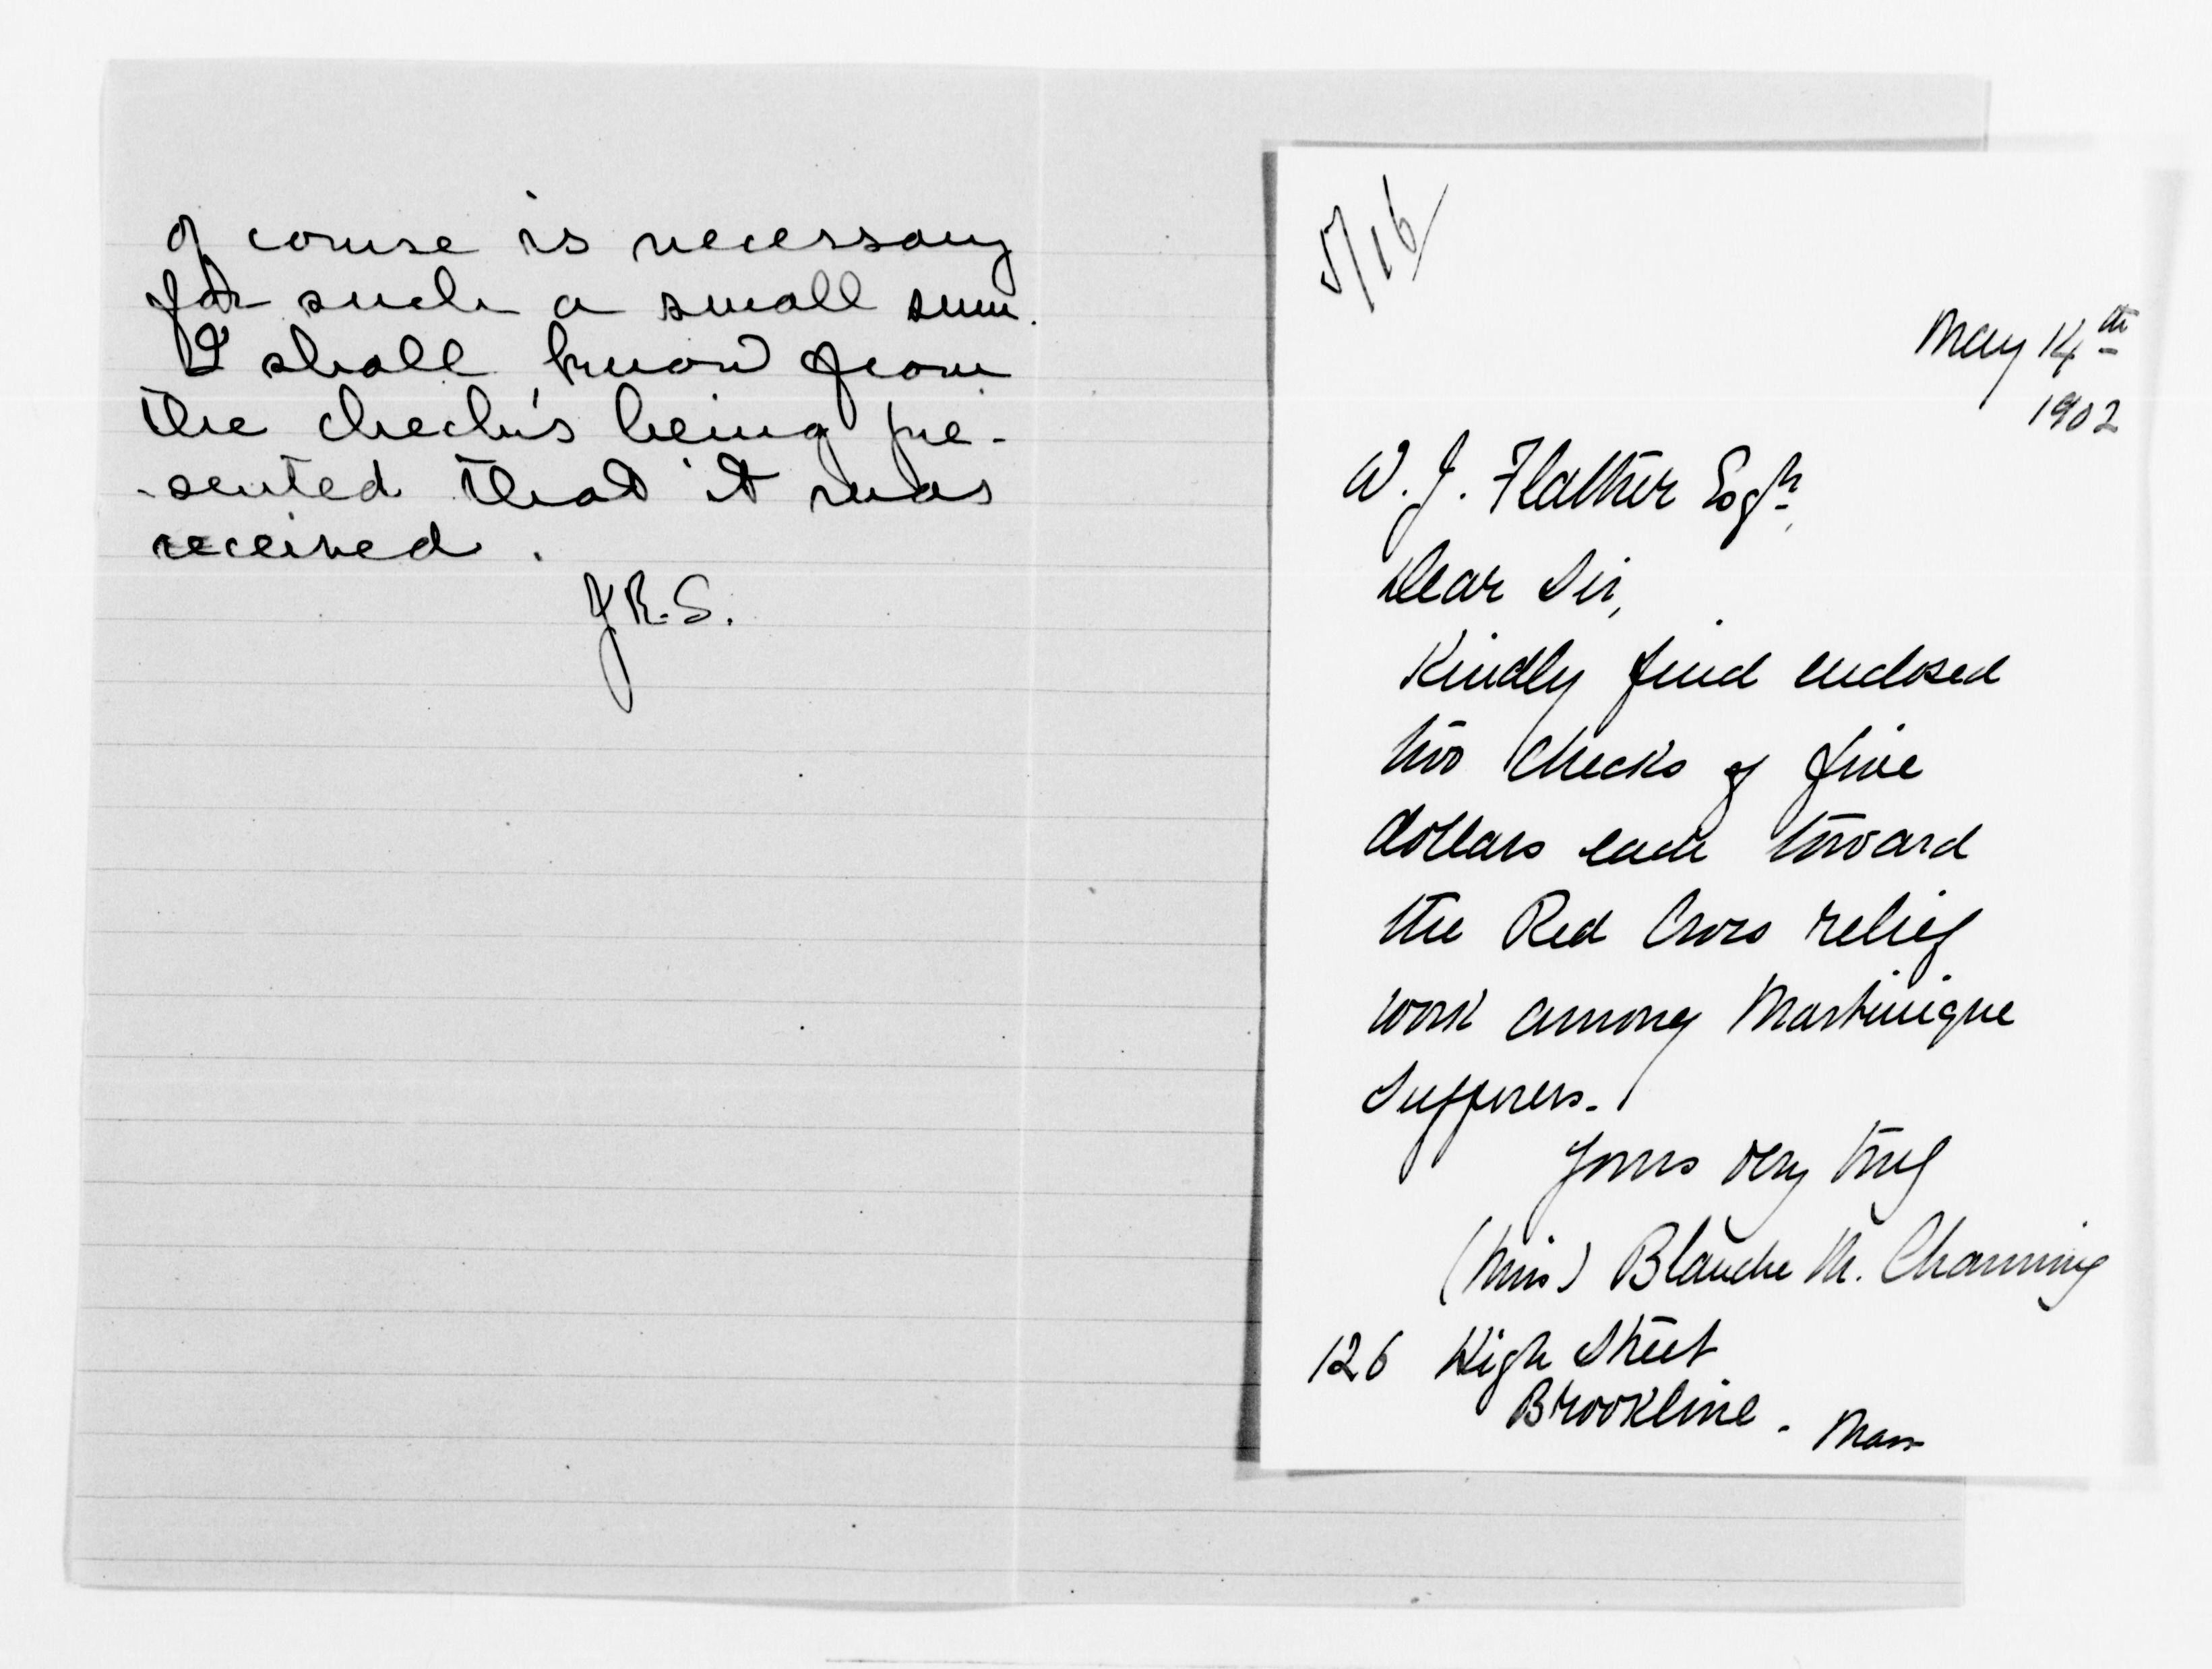 of course is necessary
for such a small sum.
I shall know from
the check's being pre-
-sented that it was
received.
J R. S.
5/16
May 14th
1902
W. J. Flather Esqr,
Dear Sir,
Kindly find enclosed
two checks of five
dollars each toward
the Red Cross relief
work among Martinique
Sufferers.
Yours very truly
(Miss) Blanche M. Channing
126 High Street
Brookline. Mass